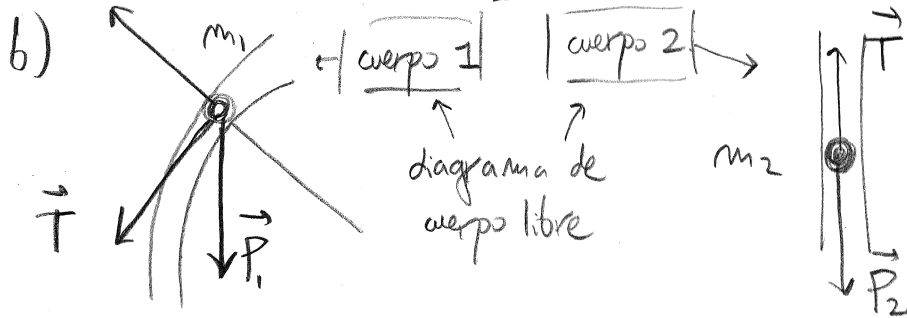 b)
m₁
T⃗
P⃗₁
cuerpo 1
cuerpo 2
diagrama de
cuerpo libre
m₂
T⃗
P⃗₂